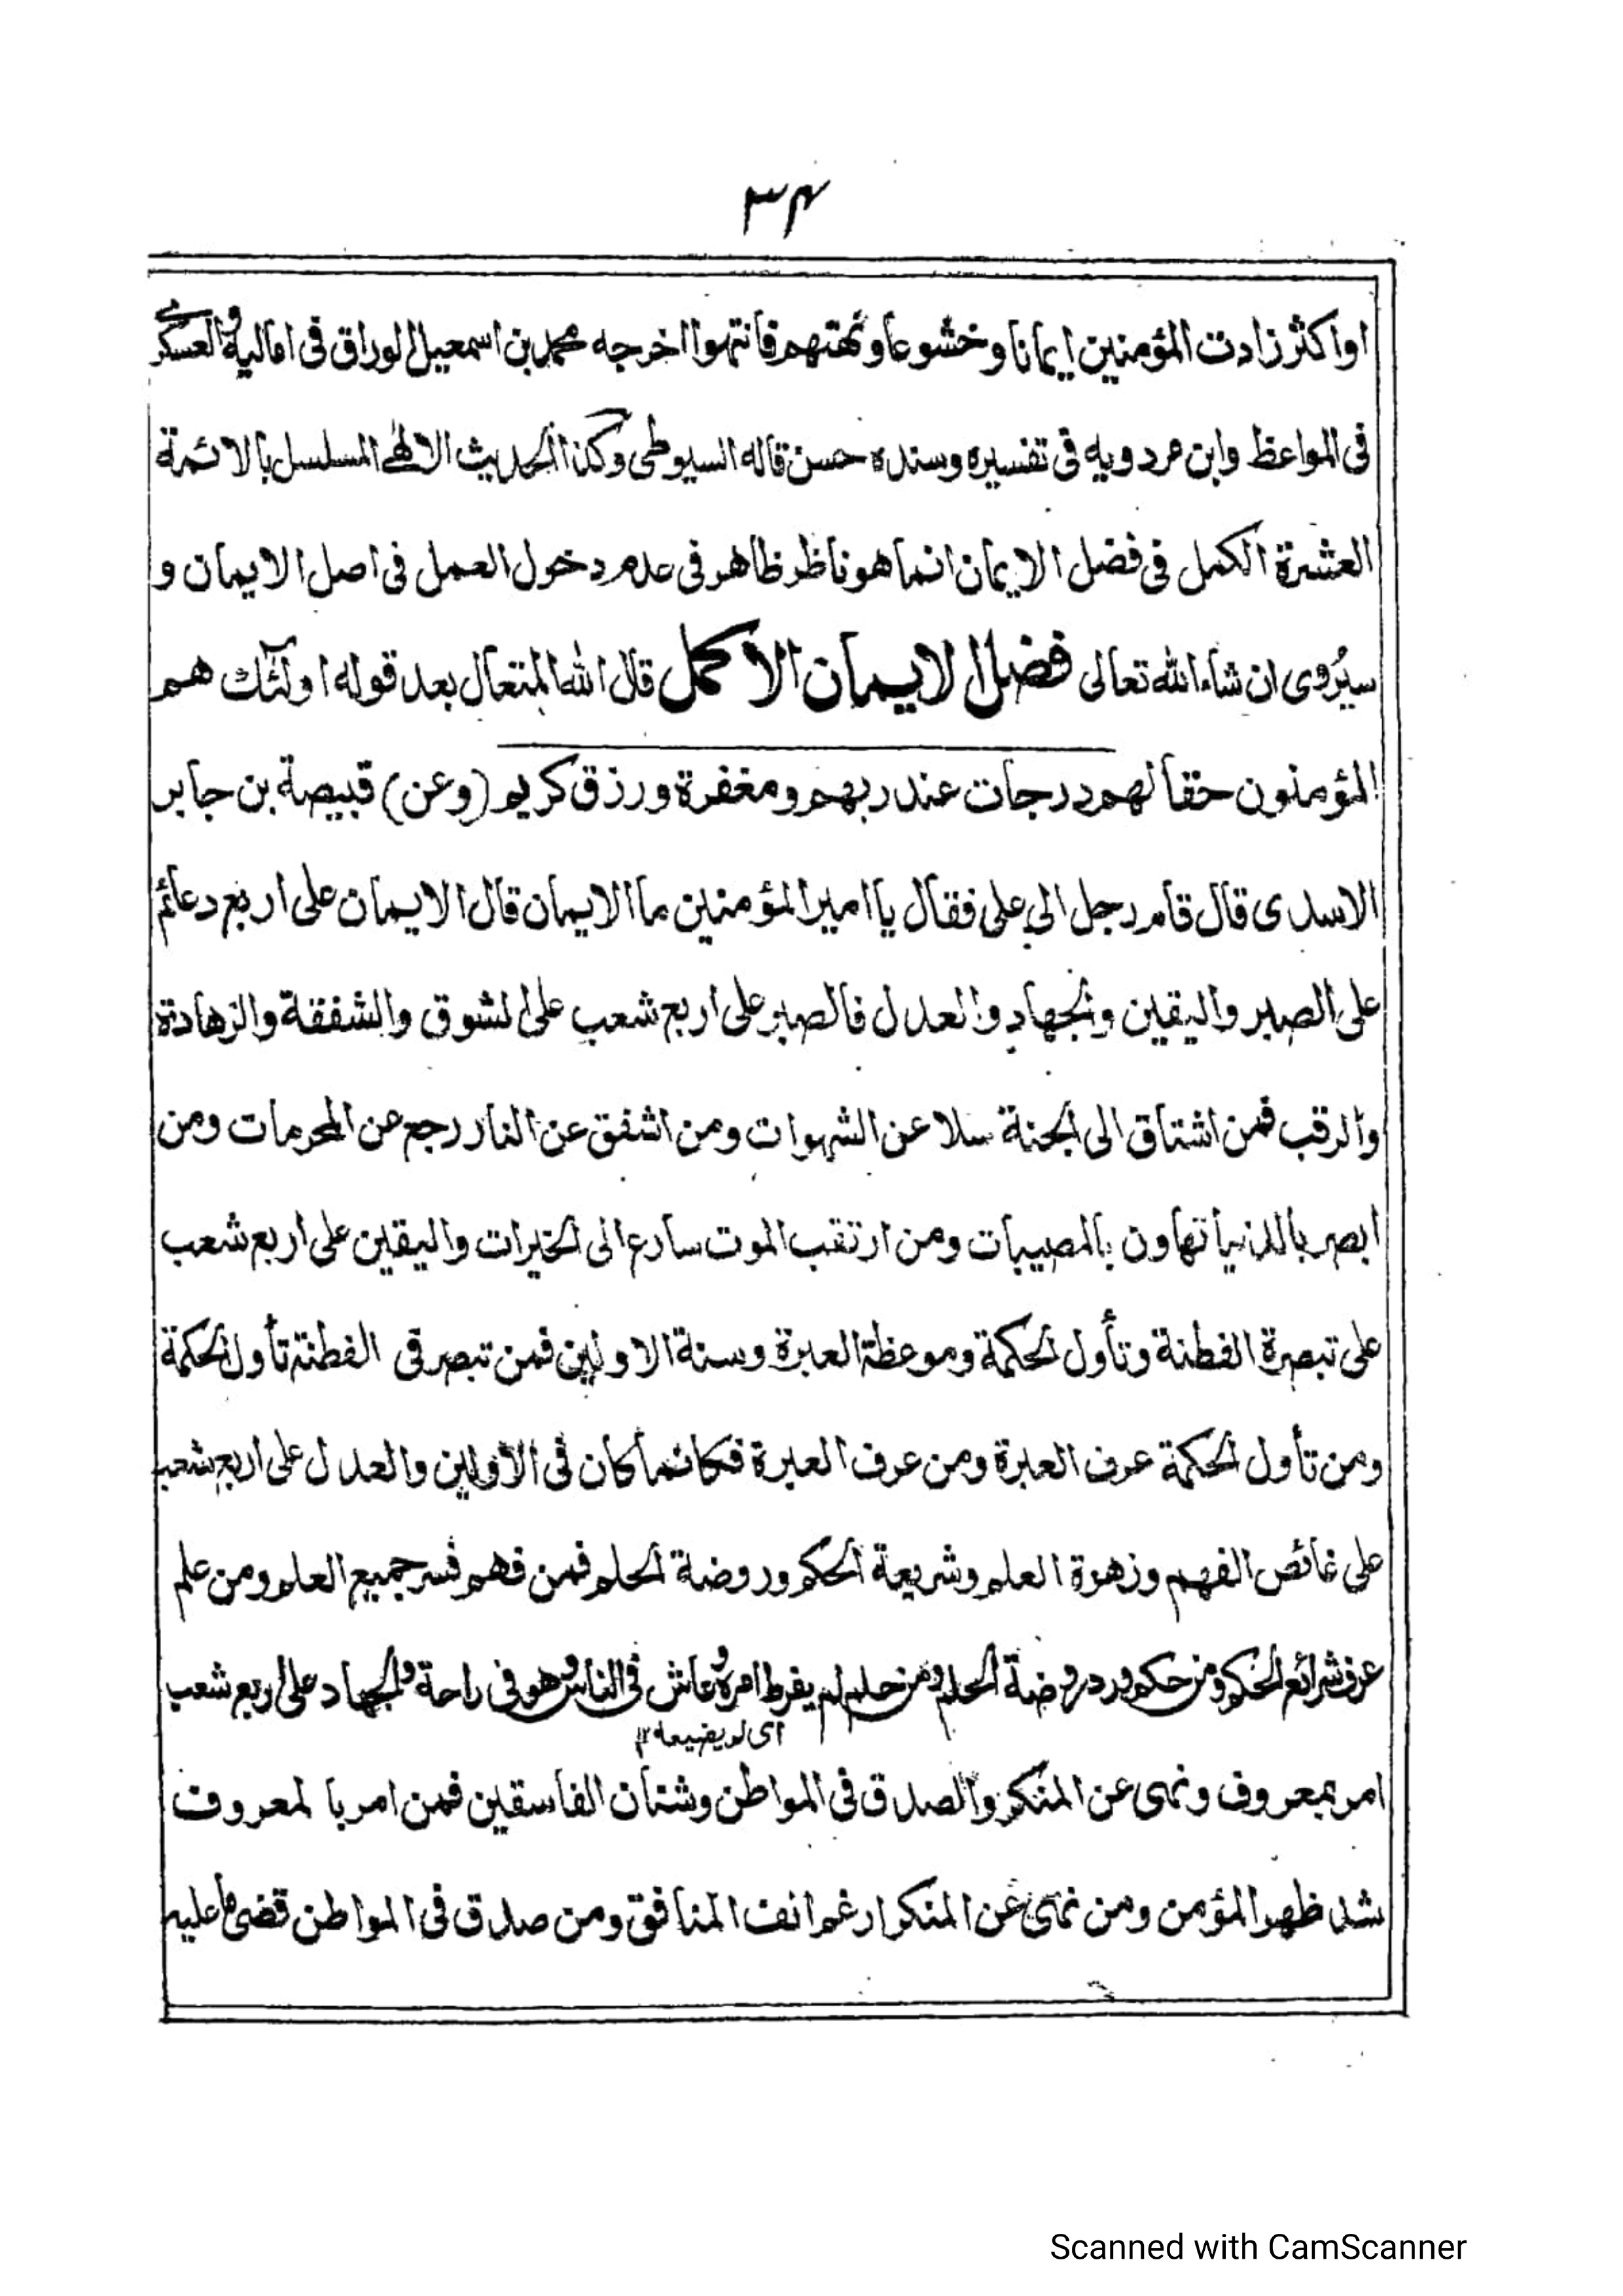 ۳۴
او اكثر زادت المؤمنين ايمانا وخشوعا ونهتهم فانتهوا اخرجه محمد بن اسمعيل الوراق فى اماليه والعسكرى
فى المواعظ وابن مردويه فى تفسيره وسنده حسن قاله السيوطى وكذا الحديث الالٰهى المسلسل بالائمة
العشرة الكمل فى فضل الايمان انما هو ناظر ظاهر فى عدم دخول العمل فى اصل الايمان و
سيُروى ان شاء الله تعالى فضل الايمان الاكمل قال الله المتعال بعد قوله اولٓئك هم
المؤمنون حقا لهم درجات عند ربهم ومغفرة ورزق كريم (وعن) قبيصة بن جابر
الاسدى قال قام رجل الى على فقال يا امير المؤمنين ما الايمان قال الايمان على اربع دعائم
على الصبر واليقين والجهاد والعدل فالصبر على اربع شعب على الشوق والشفقة والزهادة
والرقب فمن اشتاق الى الجنة سلا عن الشهوات ومن اشفق عن النار رجع عن المحرمات ومن
ابصر بالدنيا تهاون بالمصيبات ومن ارتقب الموت سارع الى الخيرات واليقين على اربع شعب
على تبصرة الفطنة وتأول الحكمة وموعظة العبرة وسنة الاولين فمن تبصر فى الفطنة تأول الحكمة
ومن تأول الحكمة عرف العبرة ومن عرف العبرة فكانما كان فى الاولين والعدل على اربع شعب
على غائص الفهم وزهرة العلم وشريعة الحكم وروضة الحلم فمن فهم فسر جميع العلم ومن علم
عرف شرائع الحكم ومن حكم ورد روضة الحلم ومن حلم لم يفرط امره وعاش فى الناس وهو فى راحة والجهاد على اربع شعب
اى لم يضيعه ١٢
امر بمعروف ونهى عن المنكر والصدق فى المواطن وشنأن الفاسقين فمن امر بالمعروف
شد ظهر المؤمن ومن نهى عن المنكر ارغم انف المنافق ومن صدق فى المواطن قضى ما عليه
Scanned with CamScanner